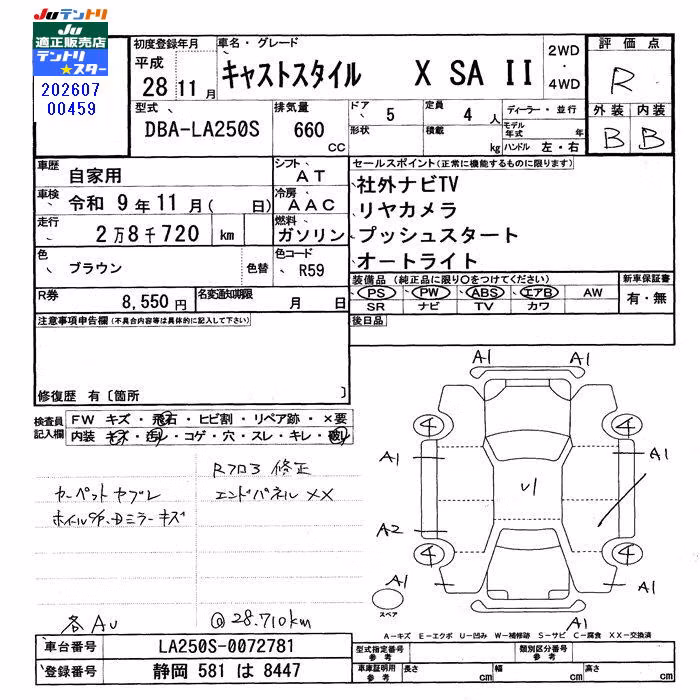 Juテントリ
Ju
適正販売店
テントリ
★スター
202607
00459
初度登録年月
平成
28年11月
車名・グレード
キャストスタイル X SA II
2WD
・
4WD
評価点
R
外装 内装
B B
型式
DBA-LA250S
排気量
660 CC
ドア
5
形状
定員
4 人
積載
kg
ディーラー・並行
モデル年式 年
ハンドル 左・右
車歴
自家用
シフト
AT
車検
令和 9年11月( 日)
冷房
AAC
走行
2万8千720 km
燃料
ガソリン
色
ブラウン
色替
色コード
R59
R券
8,550円
名変通知期限
月 日
セールスポイント(正常に機能するものに限ります)
社外ナビTV
リヤカメラ
プッシュスタート
オートライト
装備品(純正品に限り○をつけてください)
PS PW ABS エアB AW
SR ナビ TV カワ
新車保証書
有・無
後日品
注意事項申告欄(不具合内容等は具体的に記入して下さい)
修復歴 有〔箇所 〕
検査員記入欄
FW キズ・飛石・ヒビ割・リペア跡・×要
内装 キズ・汚レ・コゲ・穴・スレ・キレ・破レ
Rフロア修正
カーペットヤブレ
エンドパネル××
ホイルC/P、Dミラーキズ
各AU
@28.710km
A1 A1
4 4
A1 A1
U1
A2
4 4
A1 A1
A1
スペア
A-キズ E-エクボ U-凹み W-補修跡 S-サビ C-腐食 XX-交換済
車台番号
LA250S-0072781
登録番号
静岡 581 は 8447
型式指定番号
参考
類別区分番号
参考
車庫証明用
参考
長さ cm
幅 cm
高さ cm